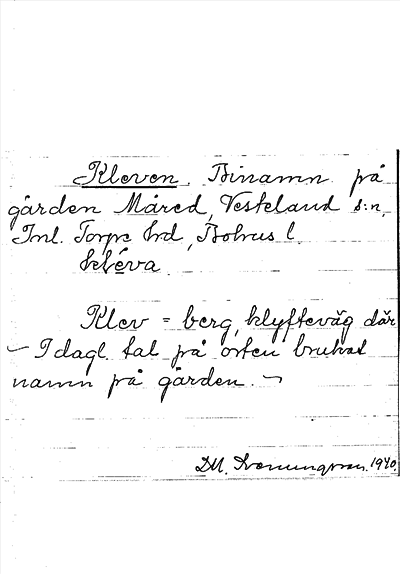 Kleven. Binamn på
gården Måred, Vesteland s:n,
Inl. Torpe hrd, Bohus l.
kléva.
Klev = berg, klyfteväg där
– I dagl. tal på orten brukat
namn på gården. –
1940.